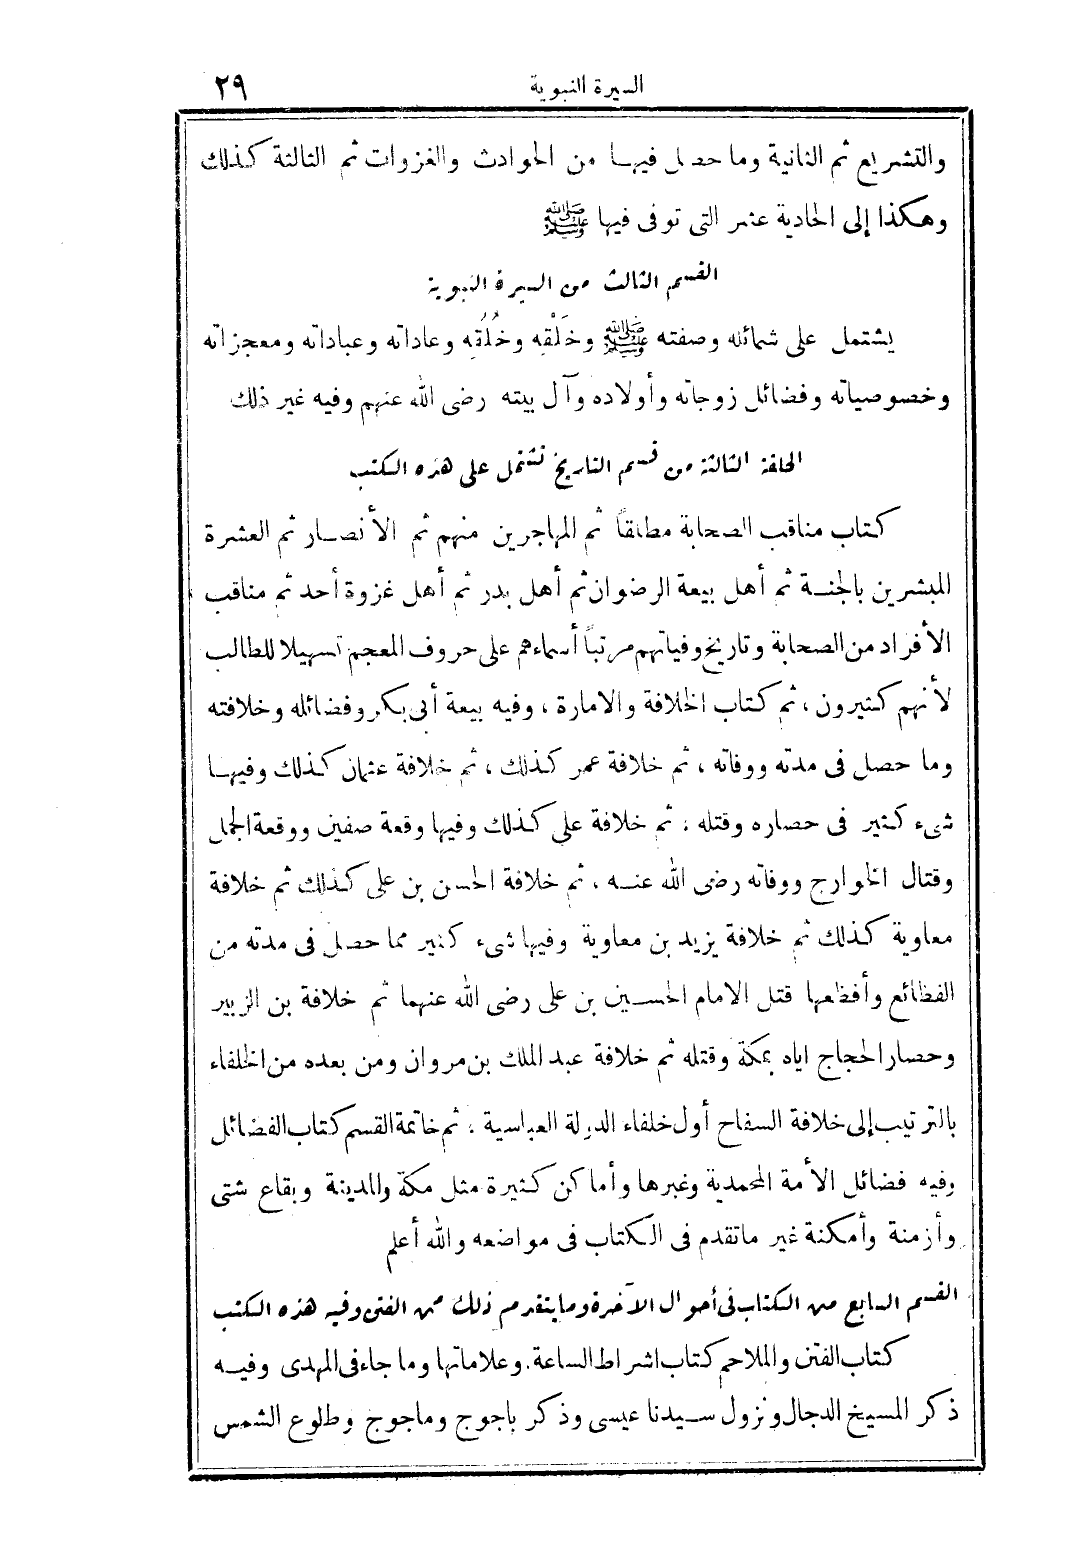 السيرة النبوية ٢٩
والتشريع ثم الثانية وما حصل فيها من الحوادث والغزوات ثم الثالثة كذلك
وهكذا إلى الحادية عشر التى توفى فيها ﷺ
القسم الثالث من السيرة النبوية
يشتمل على شمائله وصفته ﷺ وخَلْقِه وخُلُقِه وعاداته وعباداته ومعجزاته
وخصوصياته وفضائل زوجاته وأولاده وآل بيته رضى الله عنهم وفيه غير ذلك
الحلقة الثالثة من قسم التاريخ تشتمل على هذه الكتب
كتاب مناقب الصحابة مطلقاً ثم المهاجرين منهم ثم الأنصار ثم العشرة
المبشرين بالجنة ثم أهل بيعة الرضوان ثم أهل بدر ثم أهل غزوة أحد ثم مناقب
الأفراد من الصحابة وتاريخ وفياتهم مرتباً أسماءهم على حروف المعجم تسهيلا للطالب
لأنهم كثيرون ، ثم كتاب الخلافة والامارة ، وفيه بيعة أبى بكر وفضائله وخلافته
وما حصل فى مدته ووفاته ، ثم خلافة عمر كذلك ، ثم خلافة عثمان كذلك وفيها
شىء كثير فى حصاره وقتله ، ثم خلافة على كذلك وفيها وقعة صفين ووقعة الجمل
وقتال الخوارج ووفاته رضى الله عنه ، ثم خلافة الحسن بن على كذلك ثم خلافة
معاوية كذلك ثم خلافة يزيد بن معاوية وفيها شىء كثير مما حصل فى مدته من
الفظائع وأفظعها قتل الامام الحسين بن على رضى الله عنهما ثم خلافة بن الزبير
وحصار الحجاج اياه بمكة وقتله ثم خلافة عبد الملك بن مروان ومن بعده من الخلفاء
بالترتيب إلى خلافة السفاح أول خلفاء الدولة العباسية ، ثم خاتمة القسم كتاب الفضائل
وفيه فضائل الأمة المحمدية وغيرها وأماكن كثيرة مثل مكة والمدينة وبقاع شتى
وأزمنة وأمكنة غير ماتقدم فى الكتاب فى مواضعه والله أعلم
القسم السابع من الكتاب فى أحوال الآخرة وما يتقدم ذلك من الفتن وفيه هذه الكتب
كتاب الفتن والملاحم كتاب اشراط الساعة. وعلاماتها وما جاء فى المهدى وفيه
ذكر المسيخ الدجال ونزول سيدنا عيسى وذكر يأجوج ومأجوج وطلوع الشمس